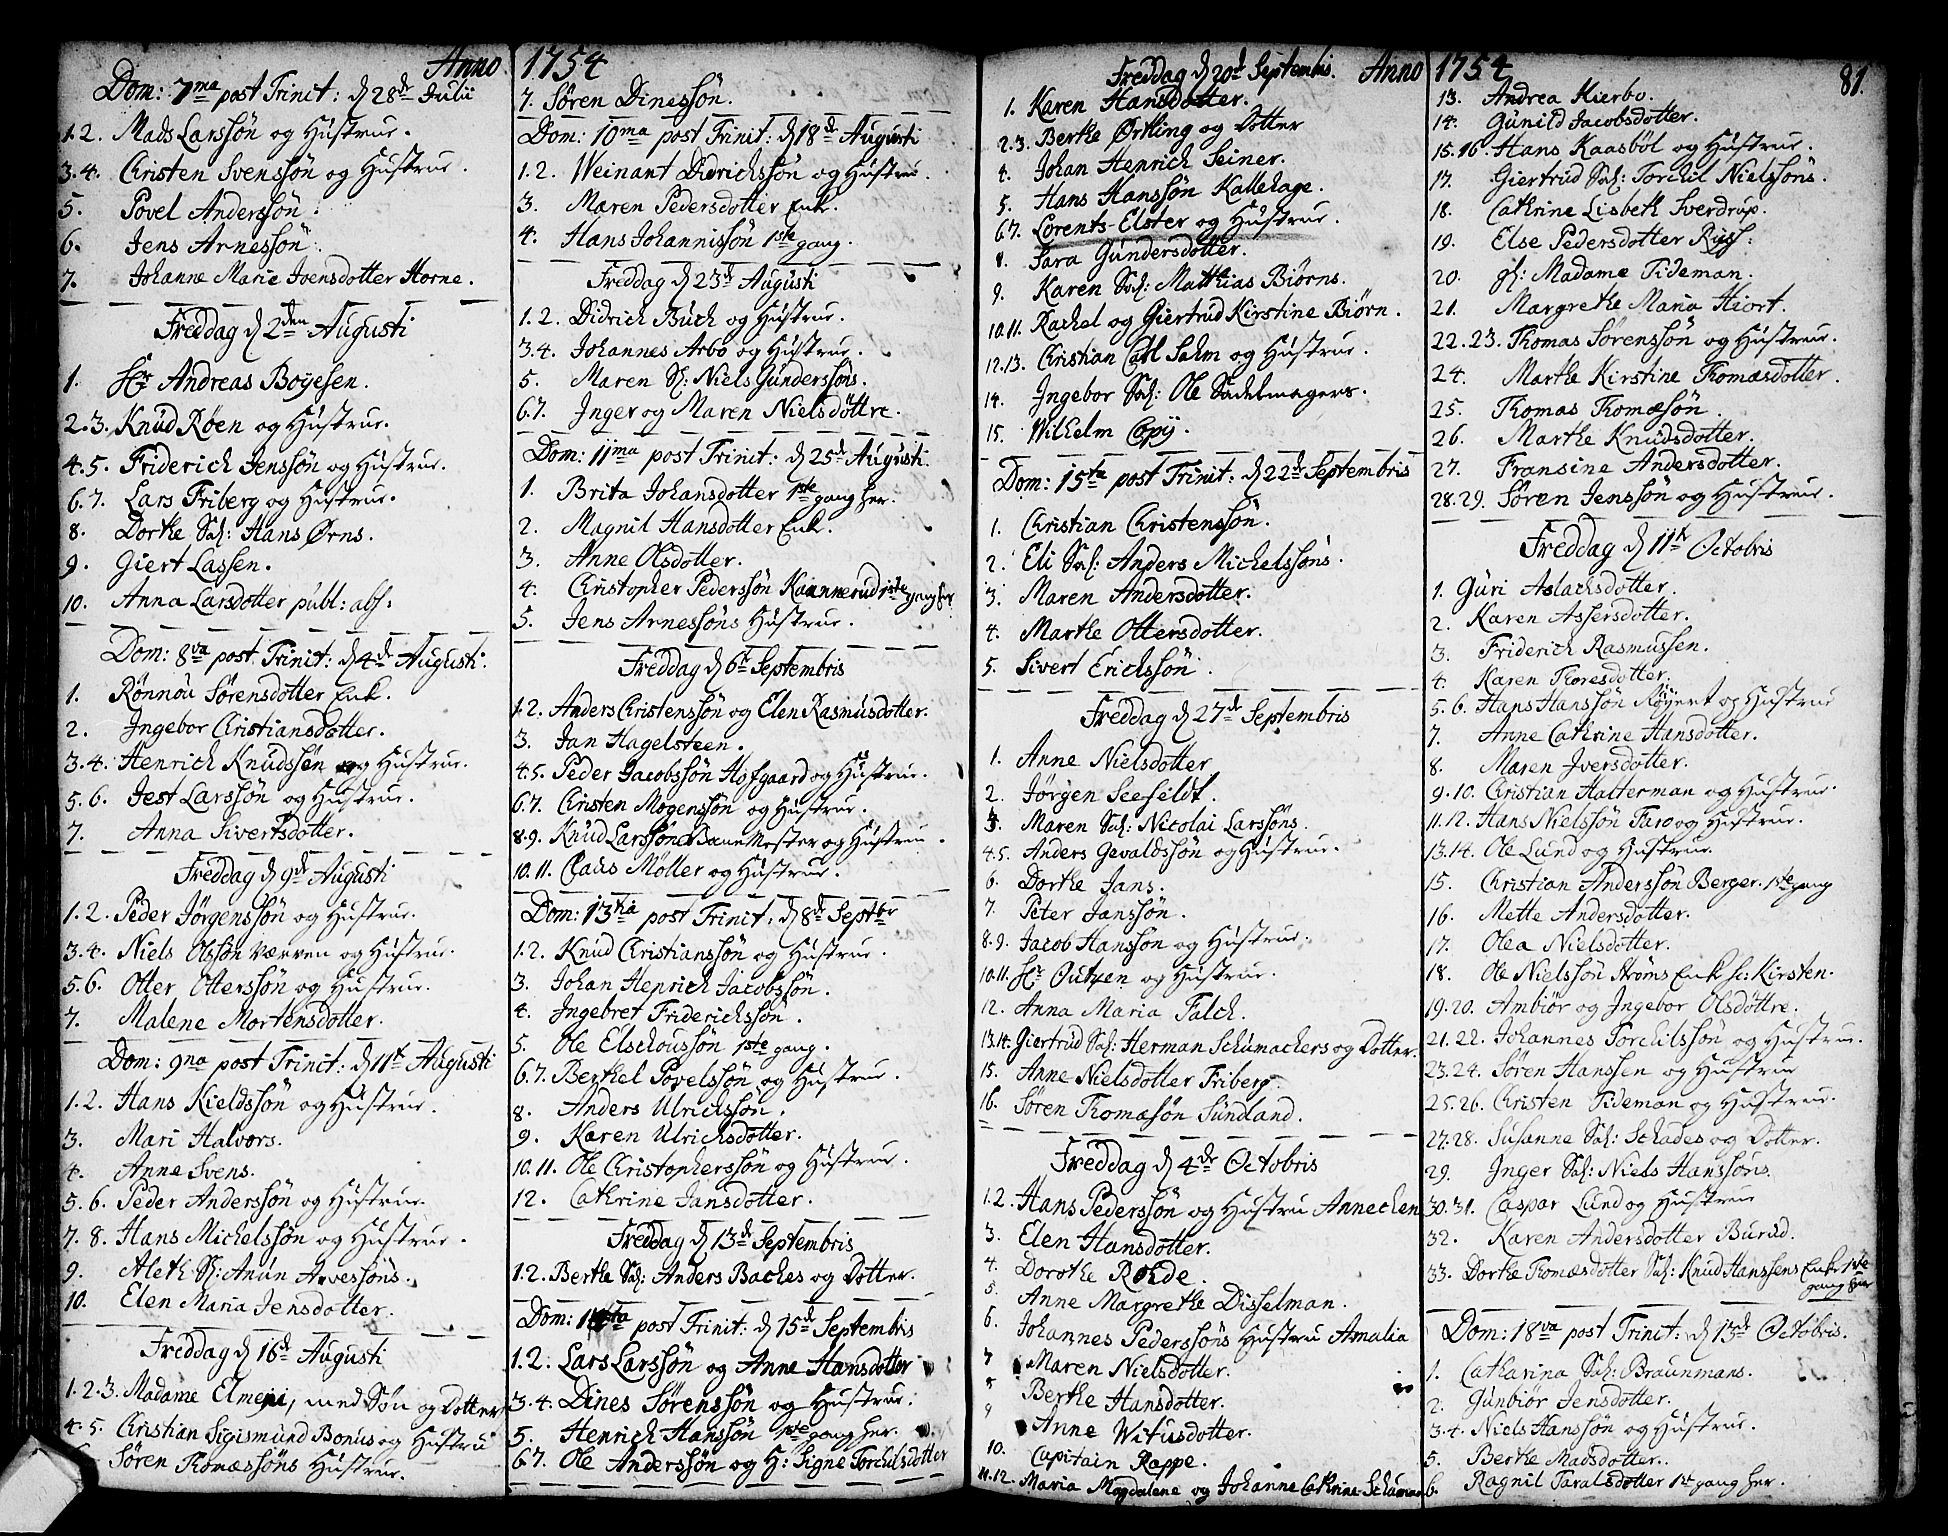 Anno 1754
Dom: 7ma post Trinit: d 28de Julii
1.2. Mads Larssön og Hustrue.
3.4. Christen Svenssön og Hustrue.
5. Povel Anderssön.
6. Jens Arnessön.
7. Johanne Marie Ivensdotter Horne.
Freddag d 2den Augusti
1. Hr Andreas Boyesen.
2.3. Knud Røen og Hustrue.
4.5. Friderich Jenssön og Hustrue.
6.7. Lars Friberg og Hustrue.
8. Dorthe Sal: Hans Ørns.
9. Giert Lassen.
10. Anna Larsdotter publ: abs:
Dom: 8va post Trinit: d 4de Augusti.
1. Rönnou Sørensdotter Enk.
2. Ingebor Christiansdotter.
3.4. Henrich Knudssön og Hustrue.
5.6. Jest Larssön og Hustrue.
7. Anna Sivertsdotter.
Freddag d 9de Augusti
1.2. Peder Jörgenssön og Hustrue.
3.4. Niels Olssön Værven og Hustrue.
5.6. Otter Otterssön og Hustrue.
7. Malene Mortensdotter.
Dom: 9na post Trinit: d 11te Augusti
1.2. Hans Kieldssön og Hustrue.
3. Mari Halvors.
4. Anne Svens.
5.6. Peder Anderssön og Hustrue.
7.8. Hans Michelssön og Hustrue.
9. Aleth Sl: Anun Arvessöns.
10. Elen Maria Jensdotter.
Freddag d 16de Augusti
1.2.3. Madame Elmeni, med Sön og Dotter
4.5. Christian Sigismund Bonus og Hustru
Sören Thomæssöns Hustrue.
7. Sören Dinessön.
Dom: 10ma post Trinit: d 18de Augusti
1.2. Weinant Didrichssön og Hustrue.
3. Maren Pedersdotter Enk.
4. Hans Johannissön 1ste gang.
Freddag d 23de Augusti
1.2. Didrich Buch og Hustrue.
3.4. Johannes Arbo og Hustrue.
5. Maren Sl: Niels Gunderssöns.
6.7. Inger og Maren Nielsdöttre.
Dom: 11ma post Trinit: d 25de Augusti.
1. Brita Johansdotter 1ste gang her.
2. Magnil Hansdotter Enk.
3. Anne Olsdotter.
4. Christopher Pederssön Kaannerud 1ste gang her
5. Jens Arnessöns Hustrue.
Freddag d 6te Septembris
1.2. Anders Christenssön og Elen Rasmusdotter.
3. Jan Hagelsteen.
4.5. Peder Jacobssön Hofgaard og Hustrue.
6.7. Christen Mogenssön og Hustrue.
8.9. Knud Larssön Bane Mester og Hustrue.
10.11. Claus Möller og Hustrue.
Dom: 13tia post Trinit: d 8de Septbr
1.2. Knud Christianssön og Hustrue.
3. Johan Henrich Jacobssön.
4. Ingebret Friderichssön.
5. Ole Elschoussön 1ste gang.
6.7. Berthel Povelssön og Hustrue.
8. Anders Ulrichssön.
9. Karen Ulrichsdotter.
10.11. Ole Christopherssön og Hustrue.
12. Cathrine Jansdotter.
Freddag d 13de Septembris
1.2. Berthe Sal: Anders Baches og Dotter.
Dom: 14ta post Trinit: d 15de Septembris
1.2. Lars Larssön og Anne Hansdotter
3.4. Dines Sörenssön og Hustrue.
5. Henrich Hanssön 1ste gang her.
6.7. Ole Anderssön og H: Signe Torchilsdotter
Freddag d 20de Septembris. Anno 1754 81.
1. Karen Hansdotter.
2.3. Berthe Örtling og Dotter
4. Johan Henrich Seiner.
5. Hans Hanssön Kallehage.
6.7. Lorents Elster og Hustrue.
8. Sara Gundersdotter.
9. Karen Sal: Matthias Biörns.
10.11. Rachel og Giertrud Kirstine Biörn.
12.13. Christian Carl Salm og Hustrue.
14. Ingebor Sal: Ole Sadelmagers.
15. Wilhelm Copÿ.
Dom: 15ta post Trinit: d 22de Septembris
1. Christian Christenssön.
2. Eli Sal: Anders Michelssöns.
3. Maren Andersdotter.
4. Marthe Ottersdotter.
5. Sivert Erichssön.
Freddag d 27de Septembris
1. Anne Nielsdotter
2. Jörgen Seefeldt.
3. Maren Sal: Nicolai Larssöns.
4.5. Anders Gevaldssön og Hustrue.
6. Dorthe Jans.
7. Peter Janssön.
8.9. Jacob Hanssön og Hustrue.
10.11. Hr Outzen og Hustrue.
12. Anna Maria Falch.
13.14. Giertrud Sal: Herman Schumachers og Dotter.
15. Anne Nielsdotter Friberg.
16. Sören Thomæsön Sundland.
Freddag d 4de Octobris
1.2. Hans Pederssön og Hustru Annechen
3. Elen Hansdotter.
4. Dorothe Rohde.
5. Anne Margrethe Disselman.
6. Johannes Pederssöns Hustru Amalia
7 Maren Nielsdotter.
8 Berthe Hansdotter.
9 Anne Witusdotter.
10. Capitain Rappe.
11.12. Maria Magdalene og Johanne Cathrine Schumar
13. Andrea Hierbo.
14. Gunild Jacobsdotter.
15.16. Hans Kaasböl og Hustrue.
17. Giertrud Sal: Torchil Nielssöns.
18. Cathrine Lisbeth Sverdrup.
19. Else Pedersdotter
20. gl: Madame Tideman.
21. Margrethe Maria Hiort.
22.23. Thomas Sörenssön og Hustrue.
24. Marthe Kirstine Thomæsdotter.
25. Thomas Thomæsön.
26. Marthe Knudsdotter.
27. Fransine Andersdotter.
28.29. Sören Jenssön og Hustrue.
Freddag d 11te Octobris
1. Guri Aslachsdotter.
2. Karen Assersdotter.
3. Friderich Rasmussen.
4. Karen Thoresdotter.
5.6. Hans Hanssön Röyert og Hustrue
7. Anne Cathrine Hansdotter.
8. Maren Iversdotter.
9.10. Christian Halterman og Hustrue.
11.12. Hans Nielssön Faro og Hustrue.
13.14. Ole Lund og Hustrue.
15. Christian Anderssön Berger. 1ste gang
16. Mette Andersdotter.
17. Olea Nielsdotter.
18. Ole Nielssön Ströms Enk sc: Kirsten.
19.20. Ambiör og Ingebor Olsdöttre.
21.22. Johannes Torchilssön og Hustrue.
23.24. Sören Hanssen og Hustrue
25.26. Christen Tideman og Hustrue.
27.28. Susanne Sal: Schades og Dotter.
29. Inger Sal: Niels Hanssöns.
30.31. Caspar Lund og Hustrue
32. Karen Andersdotter Burud.
33. Dorthe Thomæsdotter Sal: Knud Hanssens Enke 1ste gang her
Dom: 18va post Trinit: d 13de Octobris.
1. Catharina Sal: Braunmans.
2. Gunbiör Jensdotter.
3.4. Niels Hanssön og Hustrue.
5. Berthe Madsdotter.
6. Ragnil Taralsdotter 1ste gang her.